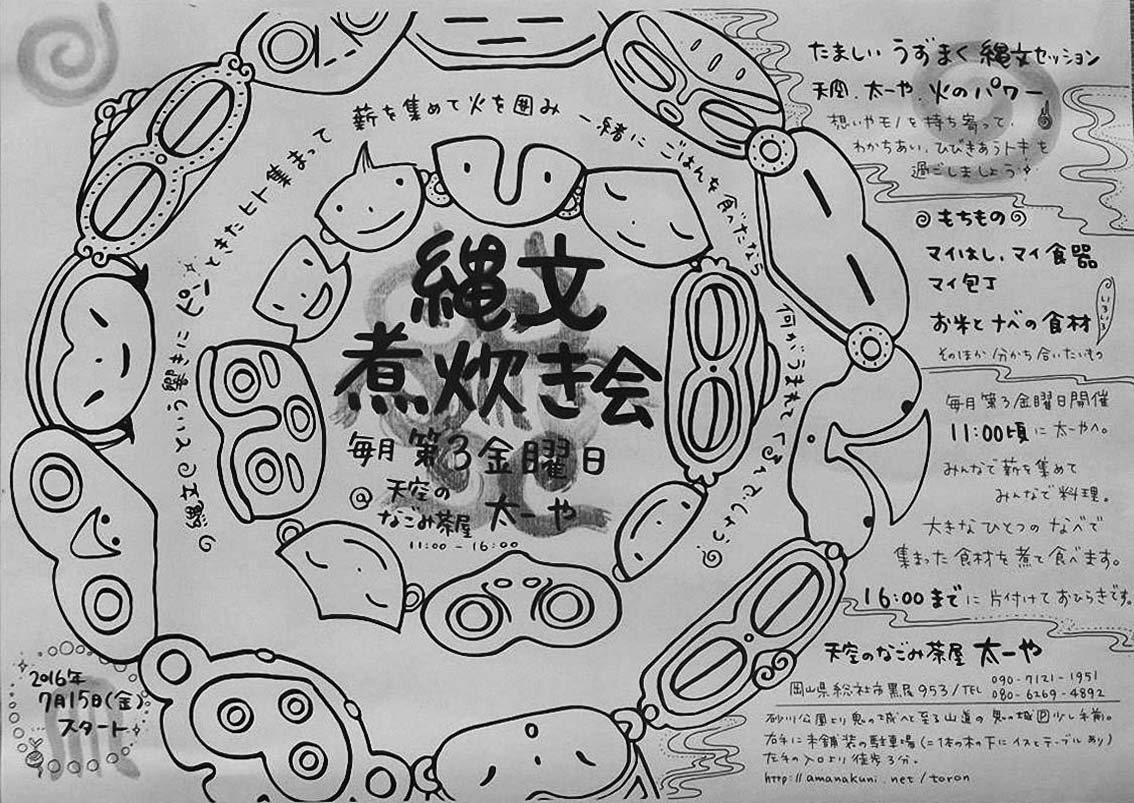 縄文
煮炊き会
毎月 第3金曜日
@ 天空の
なごみ茶屋 太一や
11:00 - 16:00
縄文エコといら響きにピンときたヒト集まって
薪を集めて火を囲み 一緒に ごはんを食ったなら
何がうまれてくるんでしょう
たましい うずまく 縄文セッション
天空、太一や、火のパワー
想いやモノを持ち寄って、
わかちあい、ひびきあうトキを
過ごしましょう
もちもの
マイはし、マイ食器
マイ包丁
お米とナベの食材
いろいろ
そのほか 分かち合いたいもの
毎月第3金曜日開催
11:00頃に 太一やへ。
みんなで薪を集め
みんなで料理。
大きなひとつの なべで
集まった食材を煮て食べます。
16:00までに 片付けて おひらきです。
2016年
7月15日(金)
スタート
天空のなごみ茶屋 太一や
岡山県総社市黒尾953/TEL 090-7121-1951
080-6269-4892
砂川公園より鬼の城へと至る山道の 鬼の城 少し手前。
右手に未舗装の駐車場(二体の木の下にイスとテーブルあり)
左手の入口より 徒歩3分。
http://amanakuni.net/toron